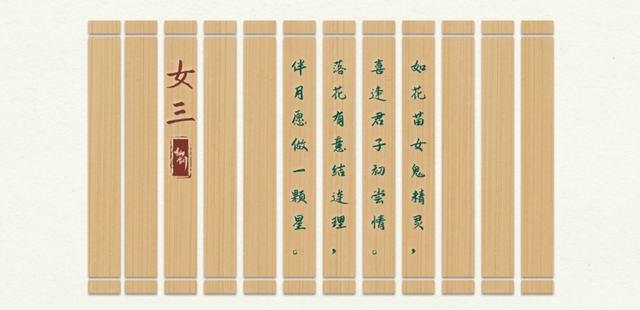 如花苗女鬼精灵，
喜逢君子初尝情。
落花有意结连理，
伴月愿做一颗星。
女三
仙剑